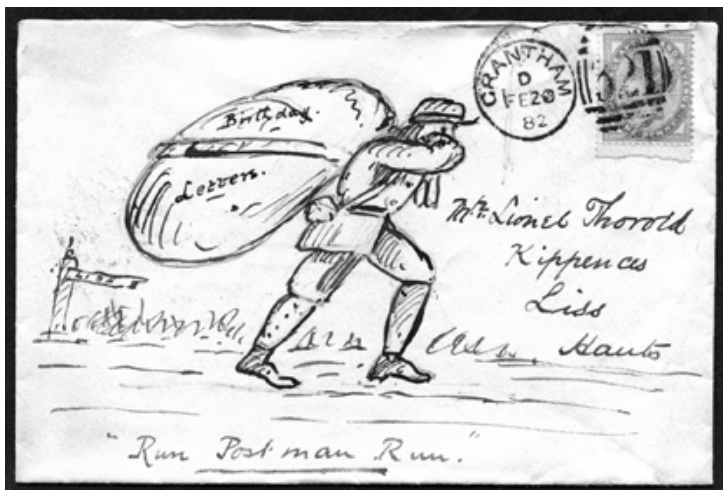 GRANTHAM
D
FE20
82
Birthday.
Letters.
Mr. Lionel Thorold
Kippences
Liss
Hants
"Run Postman Run."